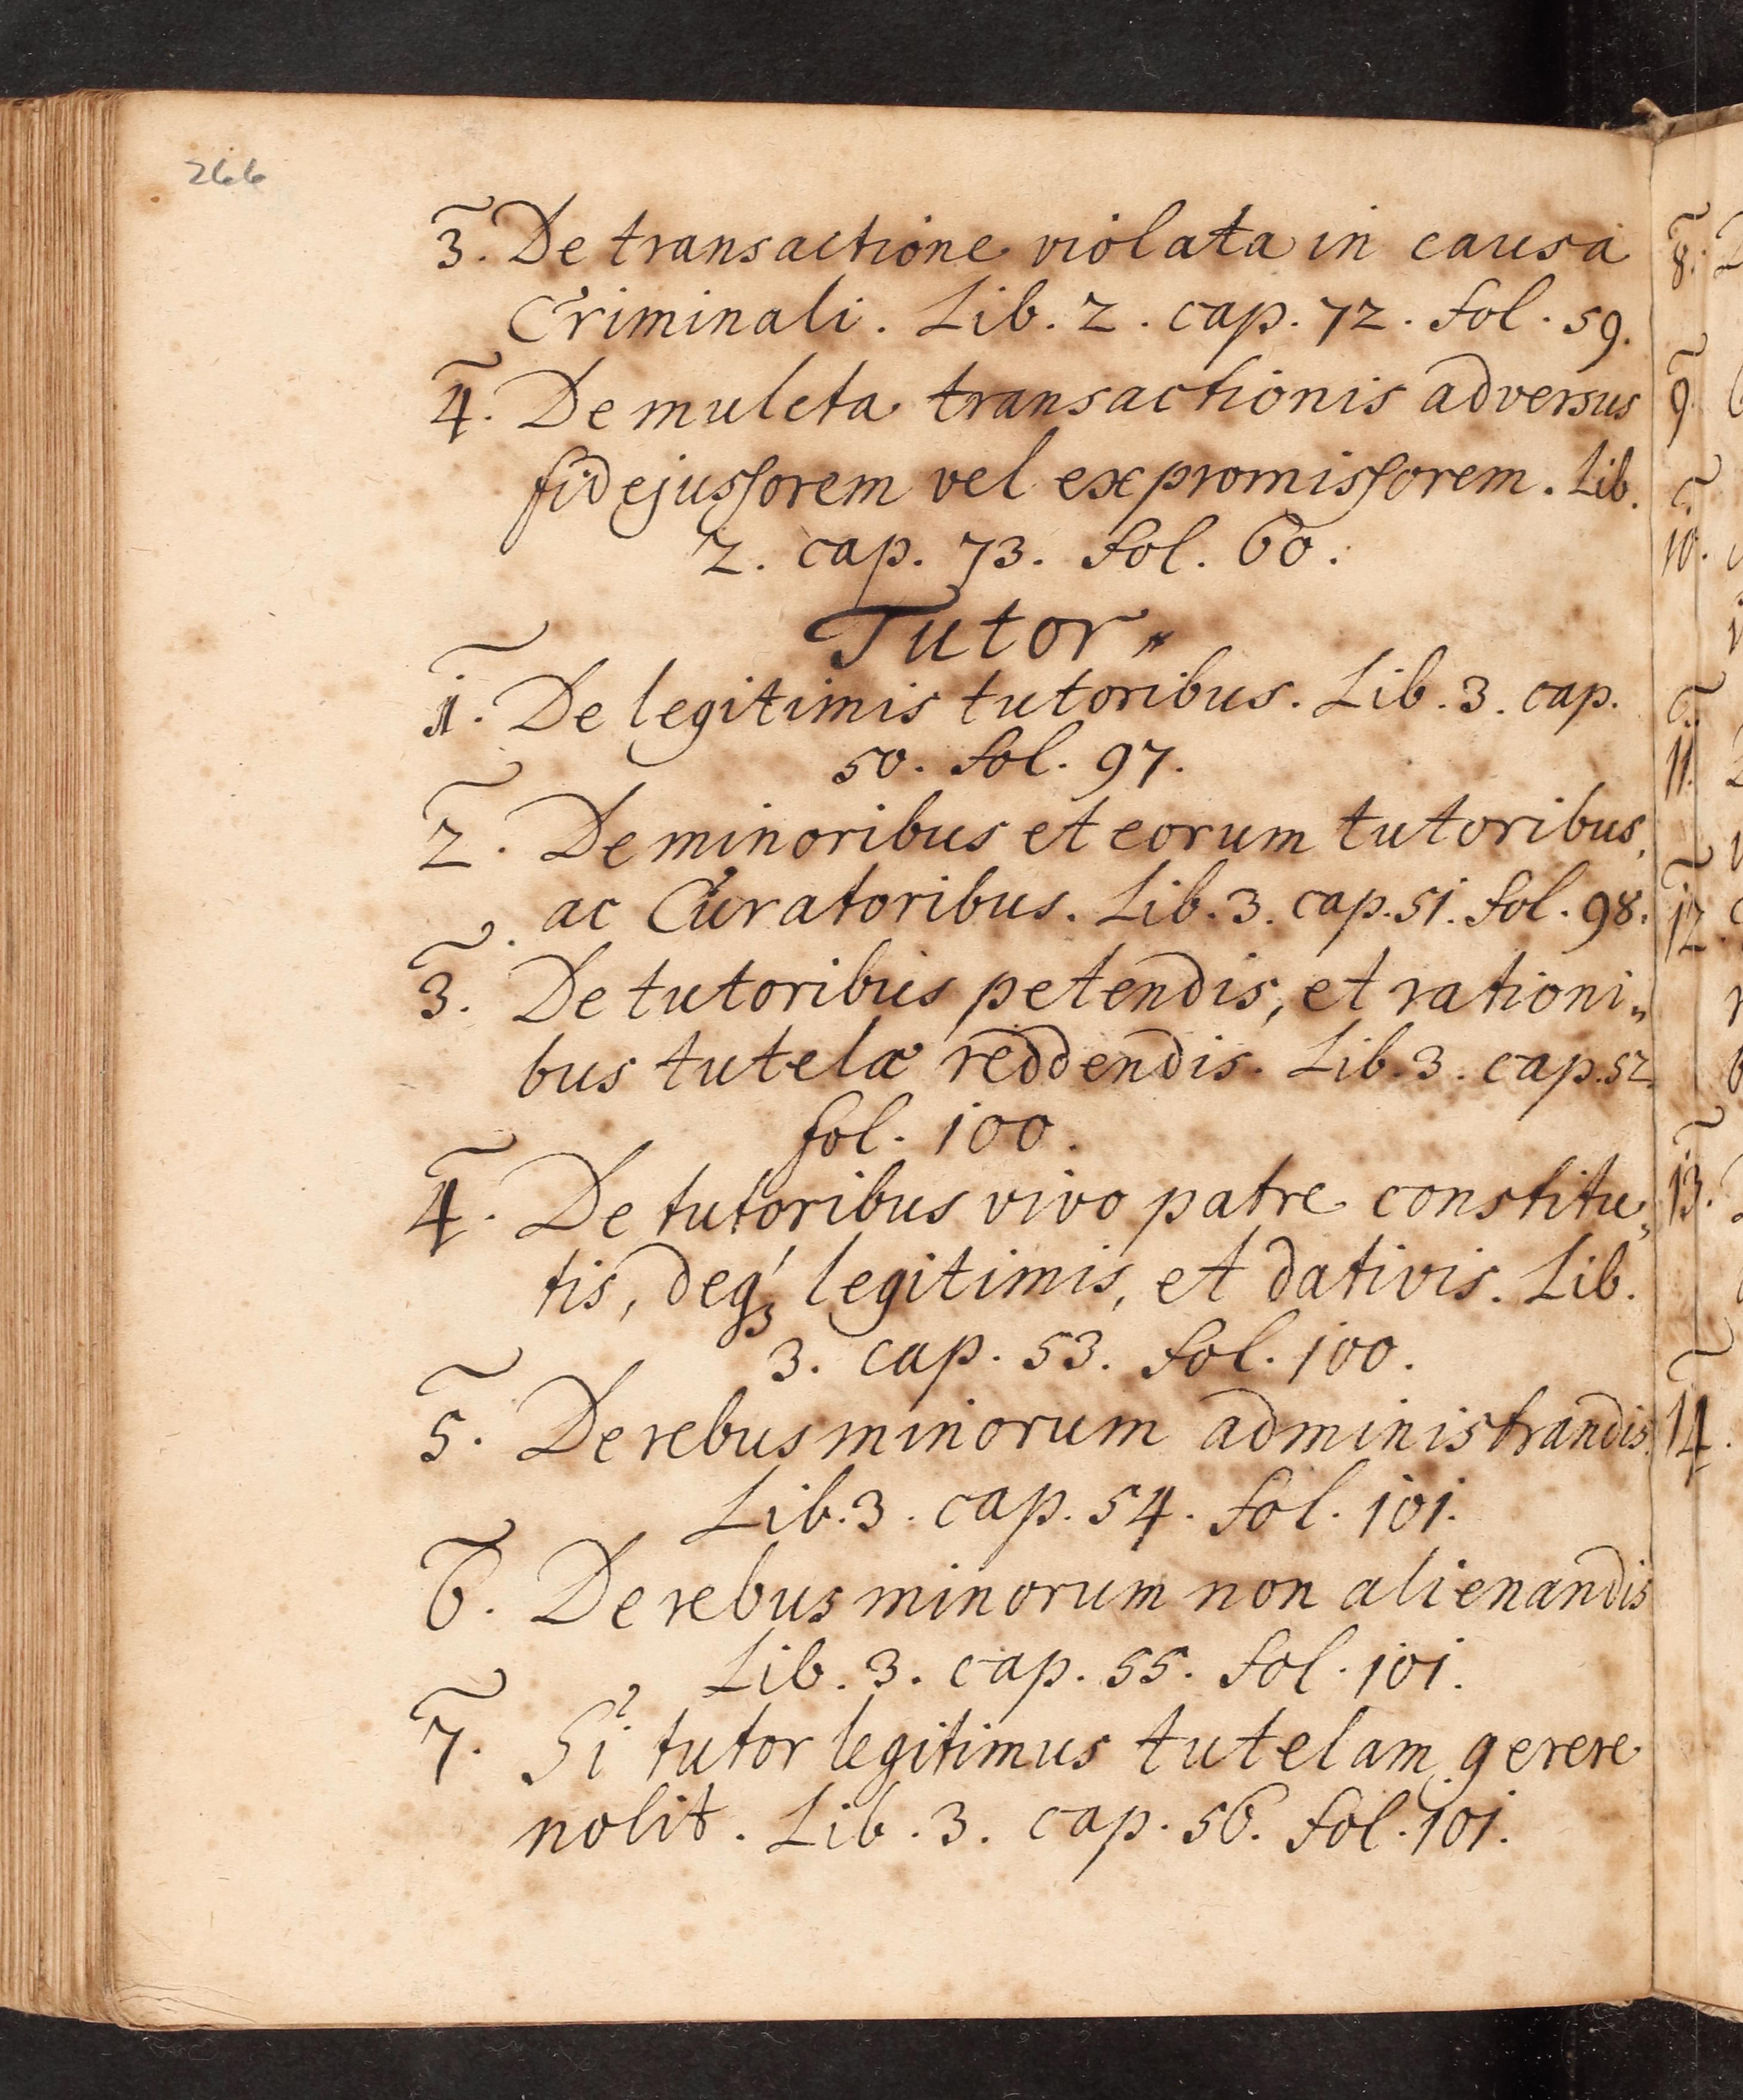 266
3. De transactione violata in causa
Criminali. Lib. 2. cap. 72. fol. 59.
4. De mulcta transactionis adversus
fidejussorem vel expromissorem. Lib.
2. cap. 73. fol. 60.
Tutor
1. De legitimis tutoribus. Lib. 3. cap.
50. fol. 97.
2. De minoribus et eorum tutoribus,
ac Curatoribus. Lib. 3. cap. 51. fol. 98.
3. De tutoribus petendis, et rationi„
bus tutelæ reddendis. Lib. 3. cap. 52.
fol. 100.
4. De tutoribus vivo patre constitu„
tis, deqꝫ legitimis, et dativis. Lib.
3. cap. 53. fol. 100.
5. De rebus minorum administrandis.
Lib. 3. cap. 54. fol. 101.
6. De rebus minorum non alienandis
Lib. 3. cap. 55. fol. 101.
7. Si tutor legitimus tutelam gerere
nolit. Lib. 3. cap. 56. fol. 101.
8.
9.
10.
11.
12.
13.
14.